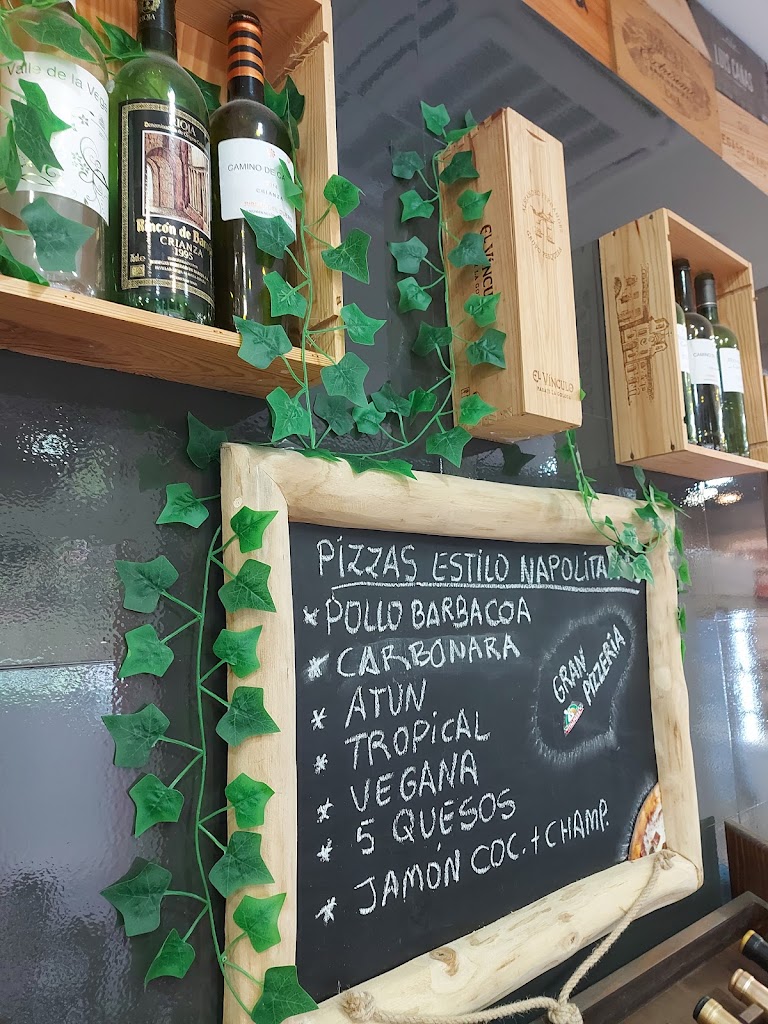 Valle de la Veg
RIOJA
RIOJA
Rincón de Ba
CRIANZA
1995
CAMINO DE CA
CRIANZA
EL VÍNCU
EL VÍNCULO
LUIS CAÑAS
PIZZAS ESTILO NAPOLITA
* POLLO BARBACOA
* CARBONARA
* ATUN
* TROPICAL
* VEGANA
* 5 QUESOS
* JAMÓN COC. + CHAMP.
GRAN
PIZZERIA